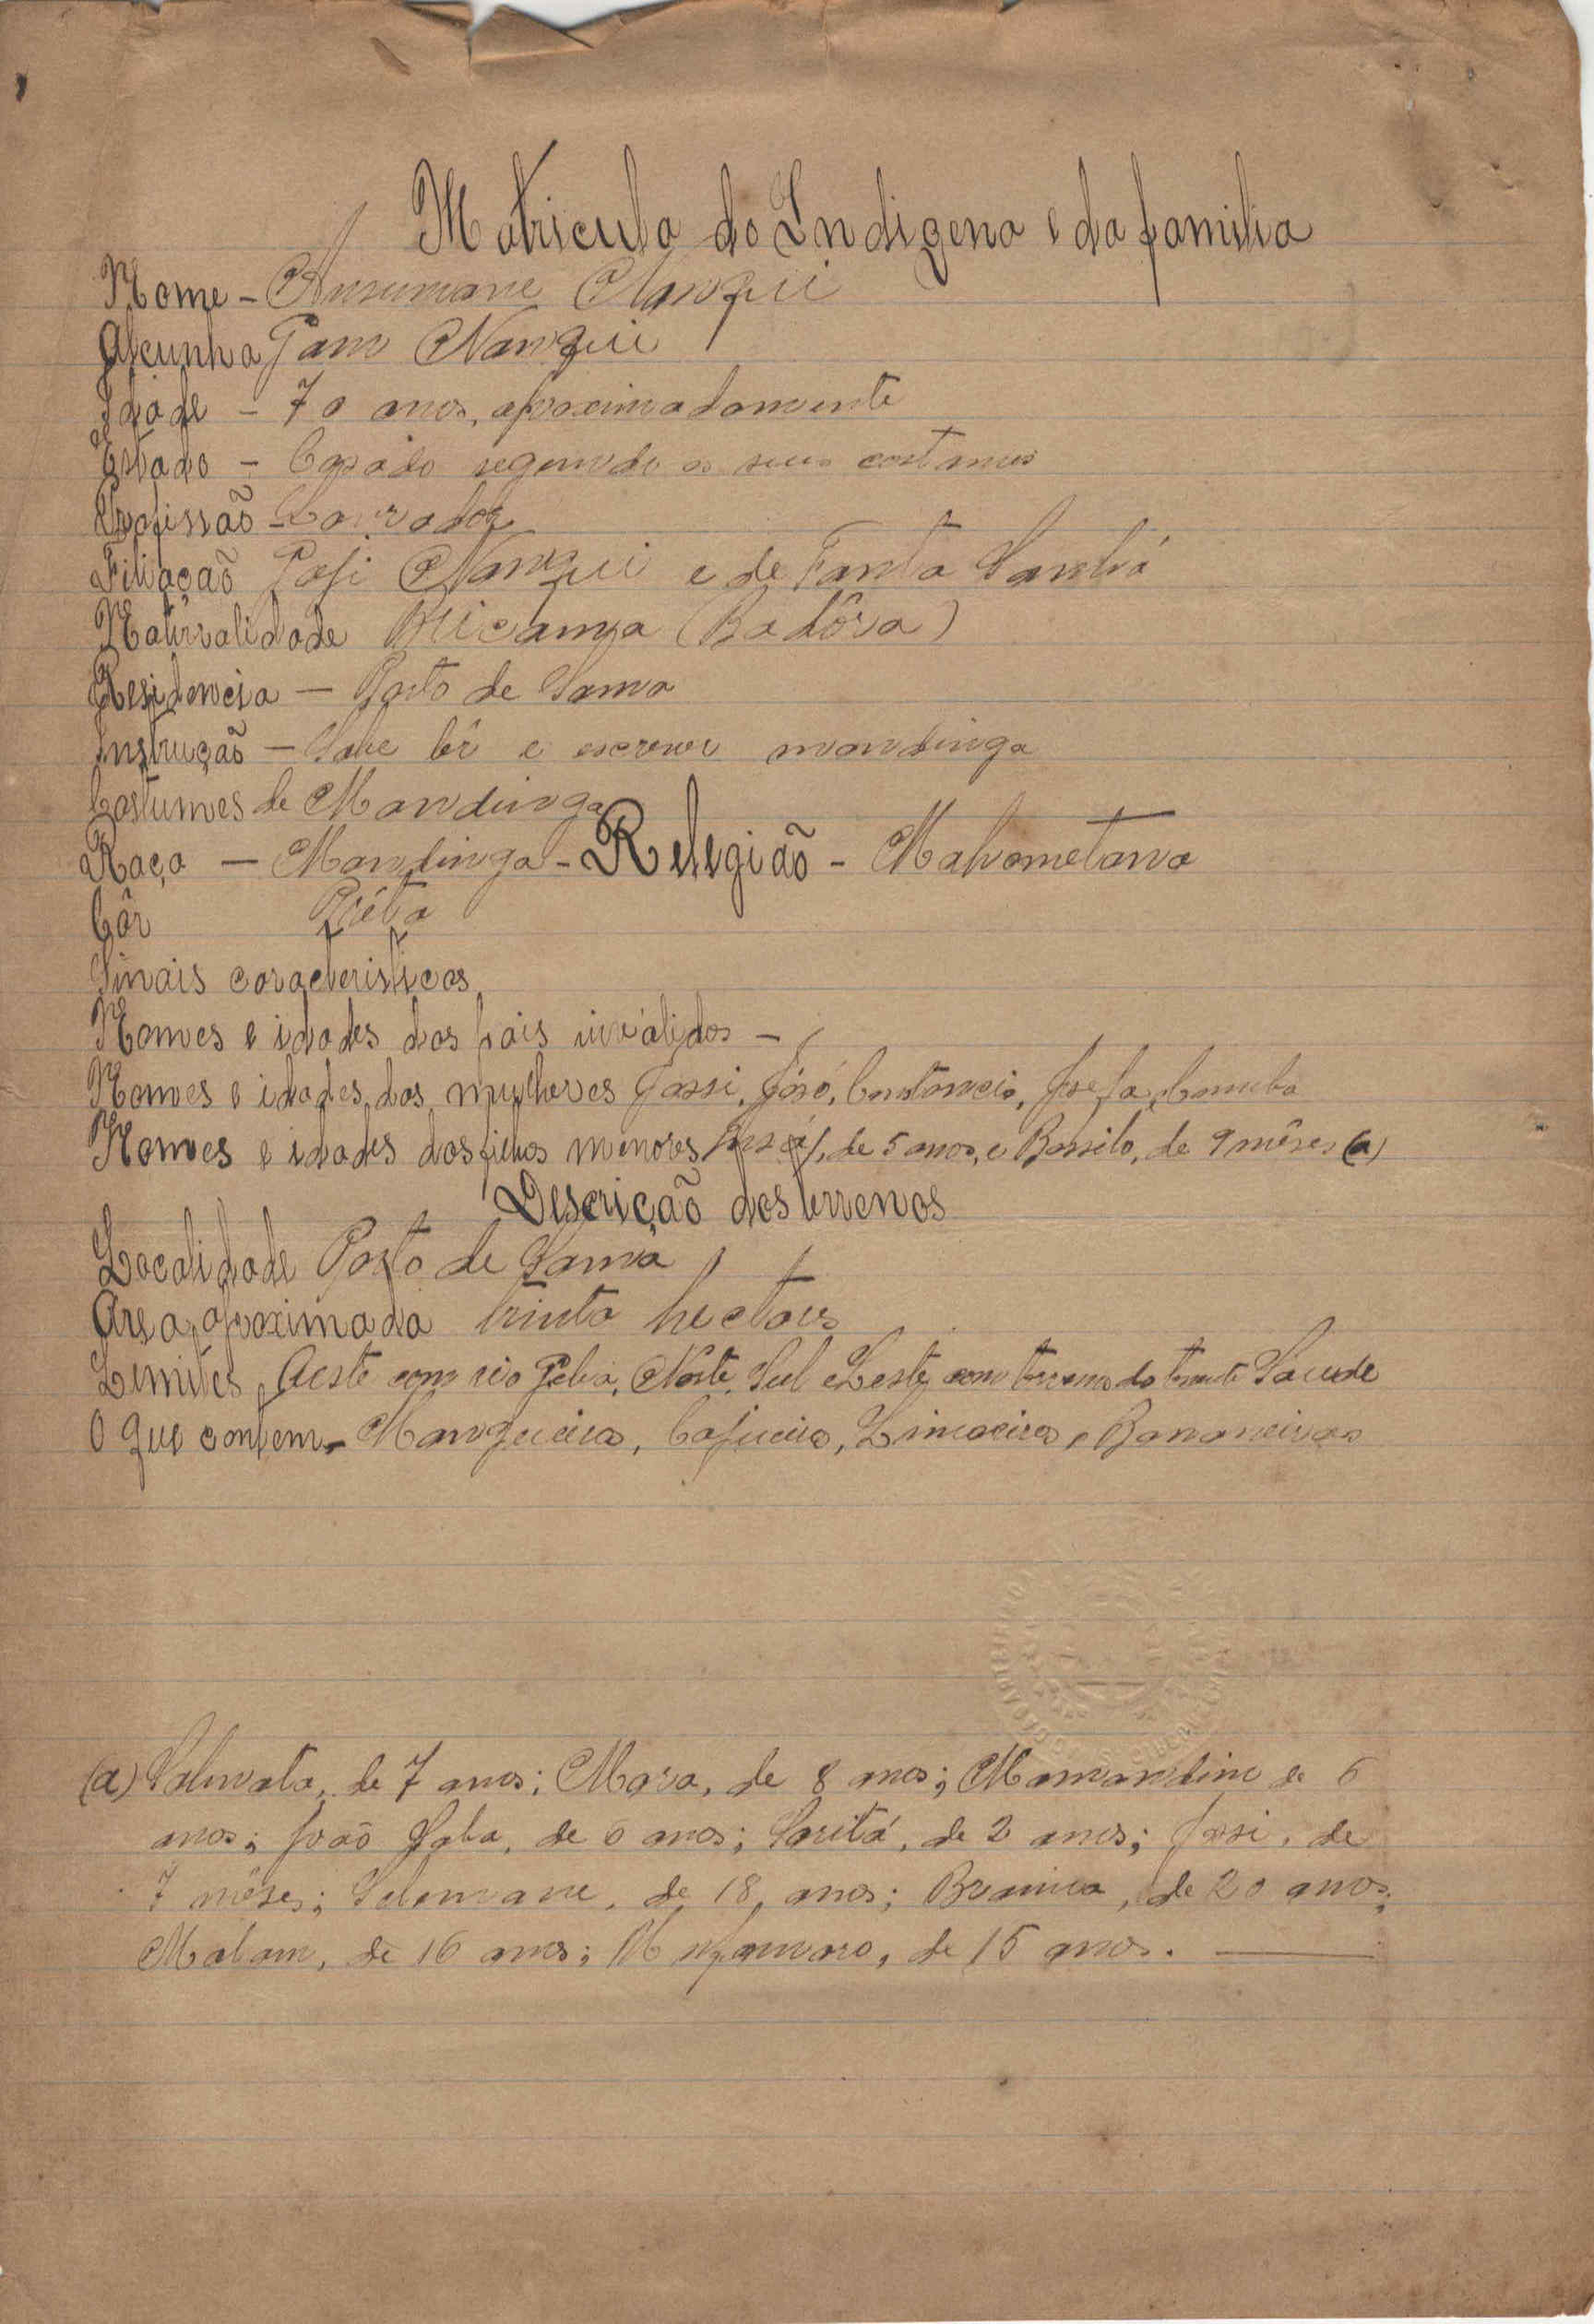 Matricula do Indigena e da familia
Nome - Ansumane Nanqui
Alcunha Jam Nanqui
Idade - 70 anos, aproximadamente
Estado - Casado segundo os seus costumes
Profissão - Lavrador
Filiação Nanqui e de Fanta Sanhá
Naturalidade (Badôra)
Residencia - Porto de Sama
Instrução - Sabe lêr e escrever mandinga
Costumes de Mandinga
Raça - Mandinga - Relegião - Mahometana
Côr Préta
Sinais caracteristicos
Nomes e idades dos pais inválidos -
Nomes e idades das mulheres Constancia, Josefa,
Nomes e idades dos filhos menores de 5 anos, e de 9 mêses (a)
Descrição dos terrenos
Localidade Porto de Sama
Area aproximada trinta hectares
Limites Oeste com rio Geba, Norte, Sul e Leste com terrenos do tenente Saude
O que contem - Mangueiras, Cajueiros, Limoeiros e Bananeiras
(a) Salimata, de 7 anos; Mara, de 8 anos; de 6
anos; João de anos; Saritá, de 2 anos; de
7 mêses; de 18 anos; Braima, de 20 anos;
Malam, de 16 anos; de 15 anos.